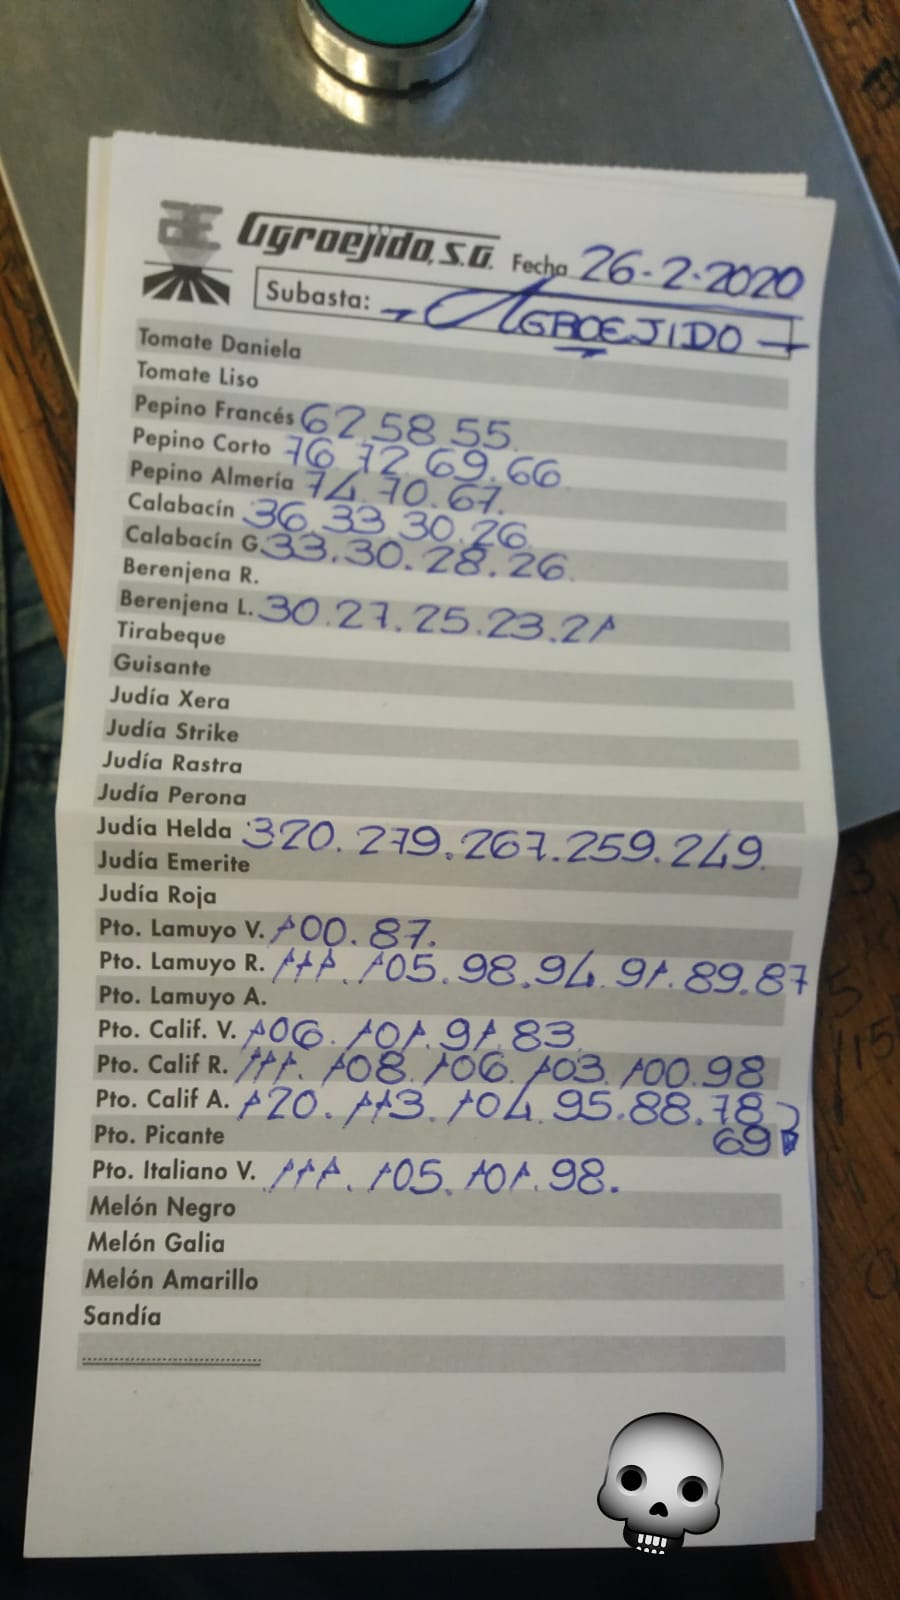 Agroejido, S.A. Fecha 26-2-2020
Subasta: AGROEJIDO
Tomate Daniela
Tomate Liso
Pepino Francés 62.58.55.
Pepino Corto 76.72.69.66.
Pepino Almería 74.70.67.
Calabacín 36.33.30.26.
Calabacín G. 33.30.28.26.
Berenjena R.
Berenjena L. 30.27.25.23.21
Tirabeque
Guisante
Judía Xera
Judía Strike
Judía Rastra
Judía Perona
Judía Helda 320.279.267.259.249.
Judía Emerite
Judía Roja
Pto. Lamuyo V. 100.87.
Pto. Lamuyo R. 111.105.98.94.91.89.87
Pto. Lamuyo A.
Pto. Calif. V. 106.101.91.83
Pto. Calif R. 111.108.106.103.100.98
Pto. Calif A. 120.113.104.95.88.78
69
Pto. Picante
Pto. Italiano V. 111.105.101.98.
Melón Negro
Melón Galia
Melón Amarillo
Sandía